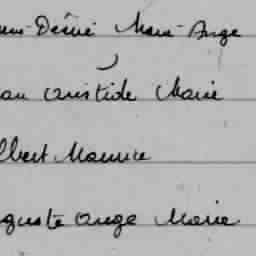 Désiré Marie-Ange
Aristide Marie
Albert Maurice
Auguste Ange Marie